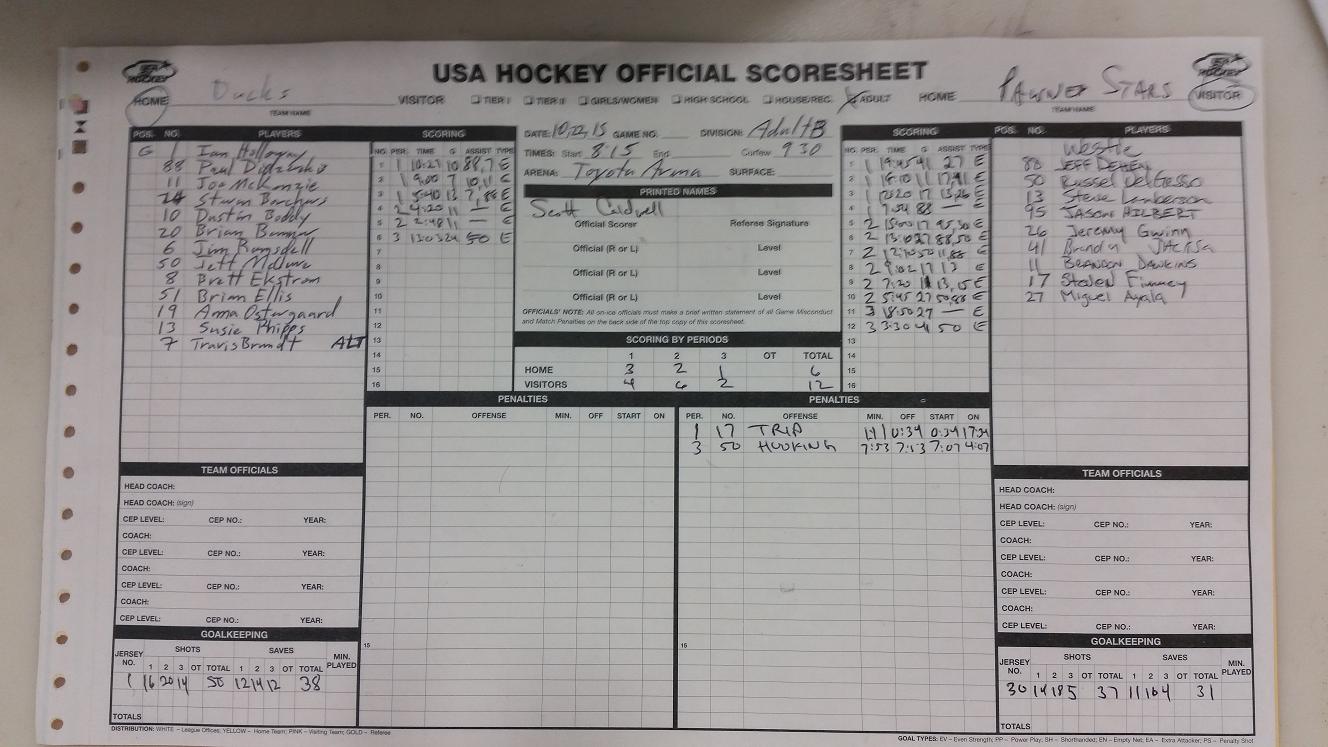 USA HOCKEY OFFICIAL SCORESHEET
HOME Ducks VISITOR TIER I TIER II GIRLS/WOMEN HIGH SCHOOL HOUSE/REC. ADULT HOME Pawnee Stars VISITOR
TEAM NAME TEAM NAME
POS. NO. PLAYERS
G 1 Ian
88 Paul
11 Joe McKenzie
24
10 Dustin Boddy
20 Brian
6 Jim Ramsdell
50 Jeff
8 Brett Ekstrom
51 Brian Ellis
19 Anna Ostergaard
13 Susie Phipps
7 Travis Brandt ALT
SCORING
NO. PER. TIME G ASSIST TYPE
1 1 10:27 10 88,7 E
2 1 9:00 7 10,11 E
3 1 5:40 13 7,88 E
4 2 4:20 11 — E
5 2 2:48 11 — E
6 3 13:03 24 50 E
7
8
9
10
11
12
13
14
15
16
DATE: 10,22,15 GAME NO. DIVISION: Adult B
TIMES: Start 8:15 End Curfew 9 30
ARENA: Toyota Arena SURFACE:
PRINTED NAMES
Scott Caldwell
Official Scorer Referee Signature
Official (R or L) Level
Official (R or L) Level
Official (R or L) Level
OFFICIALS' NOTE: All on-ice officials must make a brief written statement of all Game Misconduct
and Match Penalties on the back side of the top copy of this scoresheet.
SCORING BY PERIODS
1 2 3 OT TOTAL
HOME 3 2 1 6
VISITORS 4 6 2 12
SCORING
NO. PER. TIME G ASSIST TYPE
1 1 19:45 41 27 E
2 1 11 17,41 E
3 1 17 13,26 E
4 1 7:54 88 — E
5 2 15:00 17 95,50 E
6 2 13:03 27 88,50 E
7 2 50 11,88 E
8 2 9:02 17 13 E
9 2 7:20 11 13 E
10 2 5:45 27 50,88 E
11 3 18:50 27 — E
12 3 3:30 41 50 E
13
14
15
16
POS. NO. PLAYERS
88 JEFF
50 Russel DelGesso
13 Steve
95 JASON HILBERT
26 Jeremy Gwinn
41
11 BRANDON DAWKINS
17 Steven Finney
27 Miguel Ayala
PENALTIES
PER. NO. OFFENSE MIN. OFF START ON
15
PENALTIES
PER. NO. OFFENSE MIN. OFF START ON
1 17 TRIP 0:34 0:34 17:34
3 50 HOOKING 7:53 7:13 7:07 4:07
15
TEAM OFFICIALS
HEAD COACH:
HEAD COACH: (sign)
CEP LEVEL: CEP NO.: YEAR:
COACH:
CEP LEVEL: CEP NO.: YEAR:
COACH:
CEP LEVEL: CEP NO.: YEAR:
COACH:
CEP LEVEL: CEP NO.: YEAR:
GOALKEEPING
JERSEY NO. SHOTS SAVES MIN. PLAYED
1 2 3 OT TOTAL 1 2 3 OT TOTAL
1 16 20 14 50 12 14 12 38
TOTALS
TEAM OFFICIALS
HEAD COACH:
HEAD COACH: (sign)
CEP LEVEL: CEP NO.: YEAR:
COACH:
CEP LEVEL: CEP NO.: YEAR:
COACH:
CEP LEVEL: CEP NO.: YEAR:
COACH:
CEP LEVEL: CEP NO.: YEAR:
GOALKEEPING
JERSEY NO. SHOTS SAVES MIN. PLAYED
1 2 3 OT TOTAL 1 2 3 OT TOTAL
30 14 18 5 37 11 16 4 31
TOTALS
DISTRIBUTION: WHITE – League Offices; YELLOW – Home Team; PINK – Visiting Team; GOLD – Referee
GOAL TYPES: EV – Even Strength; PP – Power Play; SH – Shorthanded; EN – Empty Net; EA – Extra Attacker; PS – Penalty Shot